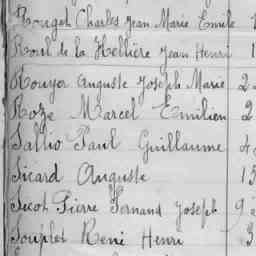 Rougot Charles Jean Marie Emile 1
Roul de la Hellière Jean Henri 1
Rouyer Auguste Joseph Marie 2
Roze Marcel Emilien 2
Sallio Paul Guillaume 4
Sicard Auguste 13
Sicot Pierre Fernand Joseph 9
Souplet René Henri 3